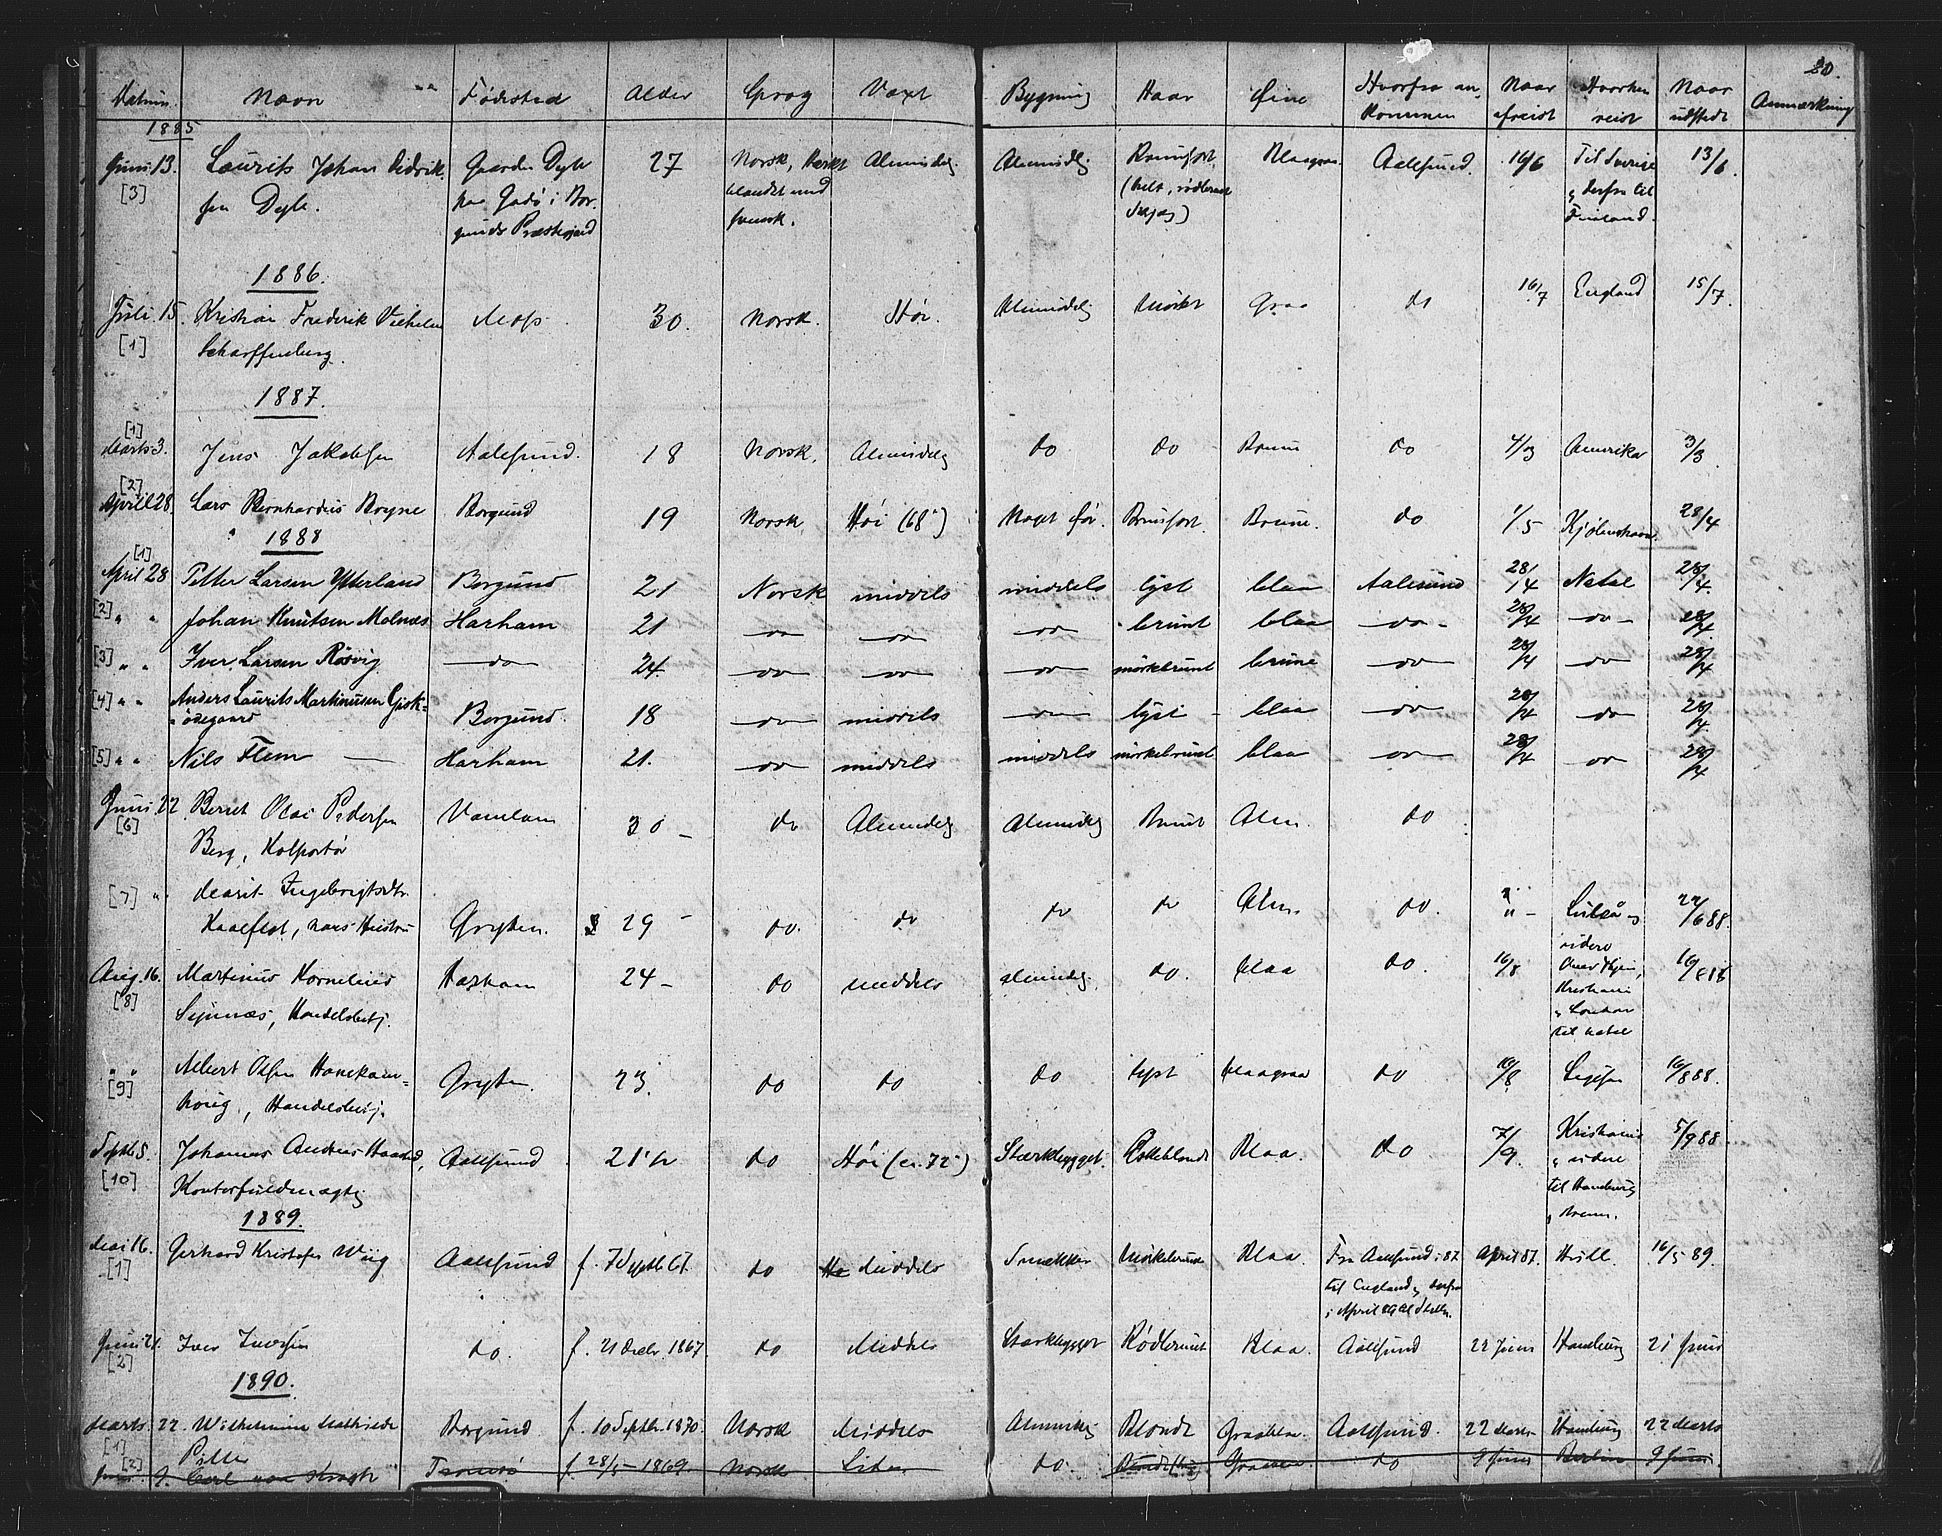 20.
Datum. Navn Fødested Alder Sprog Vext Bygning Haar Øine Hvorfra an- Naar Hvorhen Naar Anmærkning
kommen afreist reist udstedt
1885
Juni 13. Laurits Johan Didrik- Gaarden Dyb 27 Norsk, Almindelig Almindelig Blaagraa Aalesund. 16/6 Til Sverige 13/6.
[3] sen Dyb. paa Godø i Bor- blandet med (Helt, rødbrunt derfra til
gunds Præstegjæld svensk. Skjæg) Finland.
1886.
Juli 15. Kristian Frederik Vilhelm Moss 30. Norsk. Høi. Almindelig Mørkt Graa do 16/7 England 15/7.
[1] Scharffenberg.
1887.
[1]
Marts 3. Jens Jakobsen Aalesund. 18 Norsk. Almindelig do do Brune do 4/3 Amerika 3/3.
[2]
April 28. Lars Bernhardus Borgund 19 Norsk Høi (68") Noget før. Brune. do 1/5 Kjøbenhavn 28/4
1888
[1]
April 28 Petter Larsen Ytterland Borgund 21 Norsk middels middels lyst blaa Aalesund 28/4 Natal 28/4.
[2] " " Johan Knutsen Molnæs Harham 21 — do — — do — — do — brunt blaa — do — 28/4 — do — 28/4
[3] " " Iver Larsen Røsvig — do — 24. — do — — do — — do — mørkebrunt brune — do — 28/4 — do — 28/4
[4] " " Anders Laurits Martinusen Gjsk-
ødegaard Borgund. 18 — do — middels — do — lyst blaa — do — 28/4 — do — 28/4
[5] " " Nils Flem — Harham 21. — do — middels middels mørkebrunt blaa — do — 28/4 — do — 28/4
Juni 22 Berret Olai Pedersen 30 — do Almindelig Almindelig Brunt Alm. do
[6] Berg, Kolportør
[7] " Marit Ingebrigtsdtr.
Haaeflot, hans Hustru Gryten. 29 — do. do do do Alm. do. " — 22/6 88.
videre
Aug. 16. Martinus Kornelius Harham 24 — do middels almindelig. do. blaa do. 16/8 16/8
[8] Handelsbetj. Kristiania
London
til Natal
" " Albert Olsen Hanekam-
[9] houg, Handelsbetj. Gryten. 23. do do do lyst blaagraa do 16/8 Ligesaa 16/8 88.
Septb 5. Johannes Andreas Aalesund 21 1/2 do Høi (ca. 72") Stærktbygget. Blaa. do 7/9. Kristiania 5/9 88.
[10] Kontorfuldmægtig videre
til Hamburg
1889.
Mai 16. Gerhard Kristofer Wiig Aalesund f. 7 Septb 67. do Middels Smækker Mørkebrune Blaa. Fra Aalesund i 87 April 87. Hull. 16/5 89.
[1] til England, derfra
i April 89 til
Juni 21. Iver Iversen do. f. 21 Decbr. 1867. do Middels Stærkbygget Rødbrunt Blaa. Aalesund 22 Juni Hamburg 21 Juni
[2]
1890.
Marts 22. Wilhelmine Mathilde Borgund f. 10 Septbr. 1870. Norsk Middels Almindelig Blondt Graablaa Aalesund. 22 Marts Hamburg 22 Marts
[1]
[2] Juni 9. Carl von Krogh Tromsø f. 28/5 1869. Norsk Liden do. Graa do 9 Juni Berlin 9 Juni